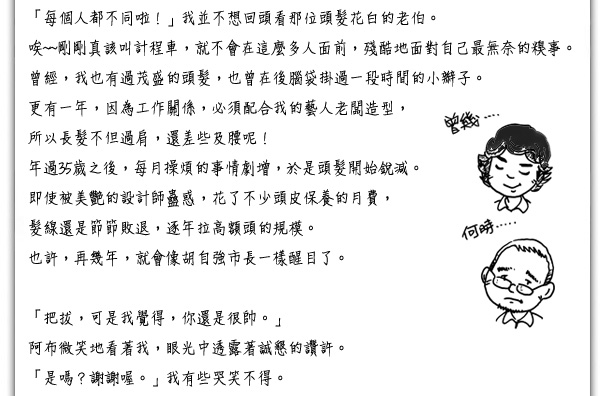 「每個人都不同啦！」我並不想回頭看那位頭髮花白的老伯。
唉~~剛剛真該叫計程車，就不會在這麼多人面前，殘酷地面對自己最無奈的糗事。
曾經，我也有過茂盛的頭髮，也曾在後腦袋掛過一段時間的小辮子。
更有一年，因為工作關係，必須配合我的藝人老闆造型，
所以長髮不但過肩，還差些及腰呢！
年過35歲之後，每月操煩的事情劇增，於是頭髮開始銳減。
即使被美艷的設計師蠱惑，花了不少頭皮保養的月費，
髮線還是節節敗退，逐年拉高額頭的規模。
也許，再幾年，就會像胡自強市長一樣醒目了。
曾幾‥‥
何時‥‥‥
「把拔，可是我覺得，你還是很帥。」
阿布微笑地看著我，眼光中透露著誠懇的讚許。
「是嗎？謝謝喔。」我有些哭笑不得。